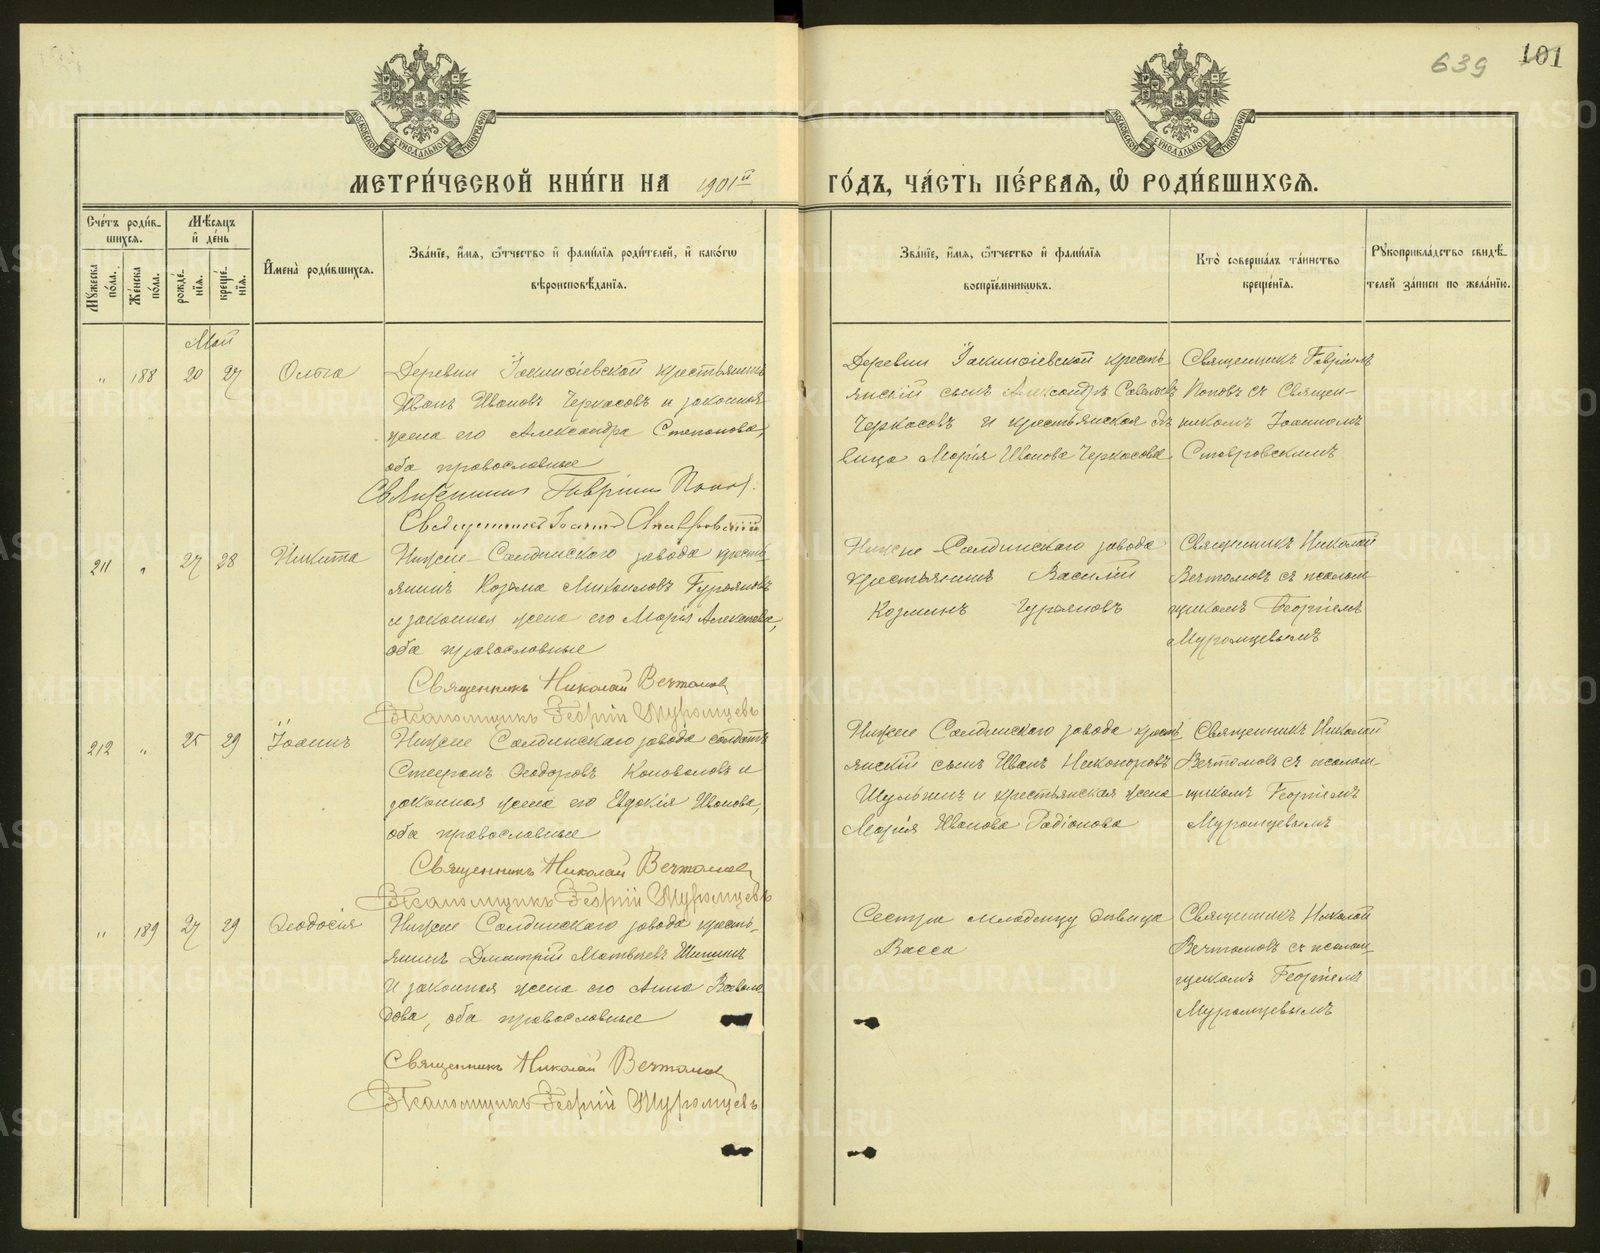 639 101
МОСКОВСКОЙ СѴНОДАЛЬНОЙ ТИПОГРАФІИ
МОСКОВСКОЙ СѴНОДАЛЬНОЙ ТИПОГРАФІИ
МЕТРИ́ЧЕСКОЙ КНИ́ГИ НА 1901й ГО́ДЪ, ЧА́СТЬ ПЕ́РВАЯ, Ѡ҆ РОДИ́ВШИХСЯ.
Сче́тъ роди́в-
шихся.
Мꙋ́жеска по́ла.
Же́нска по́ла.
Мѣ́сяцъ
и҆ де́нь
рожде́-
нїя.
креще́-
нїя.
И҆мена̀ роди́вшихся.
Зва́нїе, и҆́мя, ѻ҆́тчество и҆ фами́лїя роди́телей, и҆ како́гѡ
вѣроисповѣ́данїя.
Зва́нїе, и҆́мя, ѻ҆́тчество и҆ фами́лїя
воспрїе́мникѡвъ.
Кто̀ соверша́лъ та́инство
креще́нїя.
Рꙋкоприкла́дство свидѣ́-
телей за́писи по жела́нїю.
Май
" 188 20 27 Ольга
Деревни Іакинѳіевской крестьянинъ
Иванъ Ивановъ Черкасовъ и законная
жена его Александра Степанова,
оба православные
Священникъ Гавріилъ Поповъ.
Священникъ Іоаннъ Ставровскій
Деревни Іакинѳіевской кресть-
янскій сынъ Александръ Савеловъ
Черкасовъ и крестьянская дѣ-
вица Марія Иванова Черкасова
Священникъ Гавріилъ
Поповъ съ Священ-
никомъ Іоанномъ
Ставровскимъ
211 " 27 28 Никита
Нижне-Салдинскаго завода кресть-
янинъ Козма Михаиловъ Гурьяновъ
и законная жена его Марія Алексѣева,
оба православные
Священникъ Николай Вечтомовъ
Псаломщикъ Георгій Муромцевъ
Нижне-Салдинскаго завода
крестьянинъ Василій
Козминъ Гурьяновъ
Священникъ Николай
Вечтомовъ съ псалом-
щикомъ Георгіемъ
Муромцевымъ
212 " 25 29 Іоаннъ
Нижне Салдинскаго завода солдатъ
Стефанъ Ѳеодоровъ Коноваловъ и
законная жена его Евдокія Иванова,
оба православные
Священникъ Николай Вечтомовъ
Псаломщикъ Георгій Муромцевъ
Нижне Салдинскаго завода кресть-
янскій сынъ Иванъ Никаноровъ
Шульгинъ и крестьянская жена
Марія Иванова Радіонова
Священникъ Николай
Вечтомовъ съ псалом-
щикомъ Георгіемъ
Муромцевымъ
" 189 27 29 Ѳеодосія
Нижне Салдинскаго завода кресть-
янинъ Дмитрій Матвѣевъ Шишинъ
и законная жена его Анна Всеволо-
дова, оба православные
Священникъ Николай Вечтомовъ
Псаломщикъ Георгій Муромцевъ
Сестра младенцу дѣвица
Васса
Священникъ Николай
Вечтомовъ съ псалом-
щикомъ Георгіемъ
Муромцевымъ
METRIKI.GASO-URAL.RU